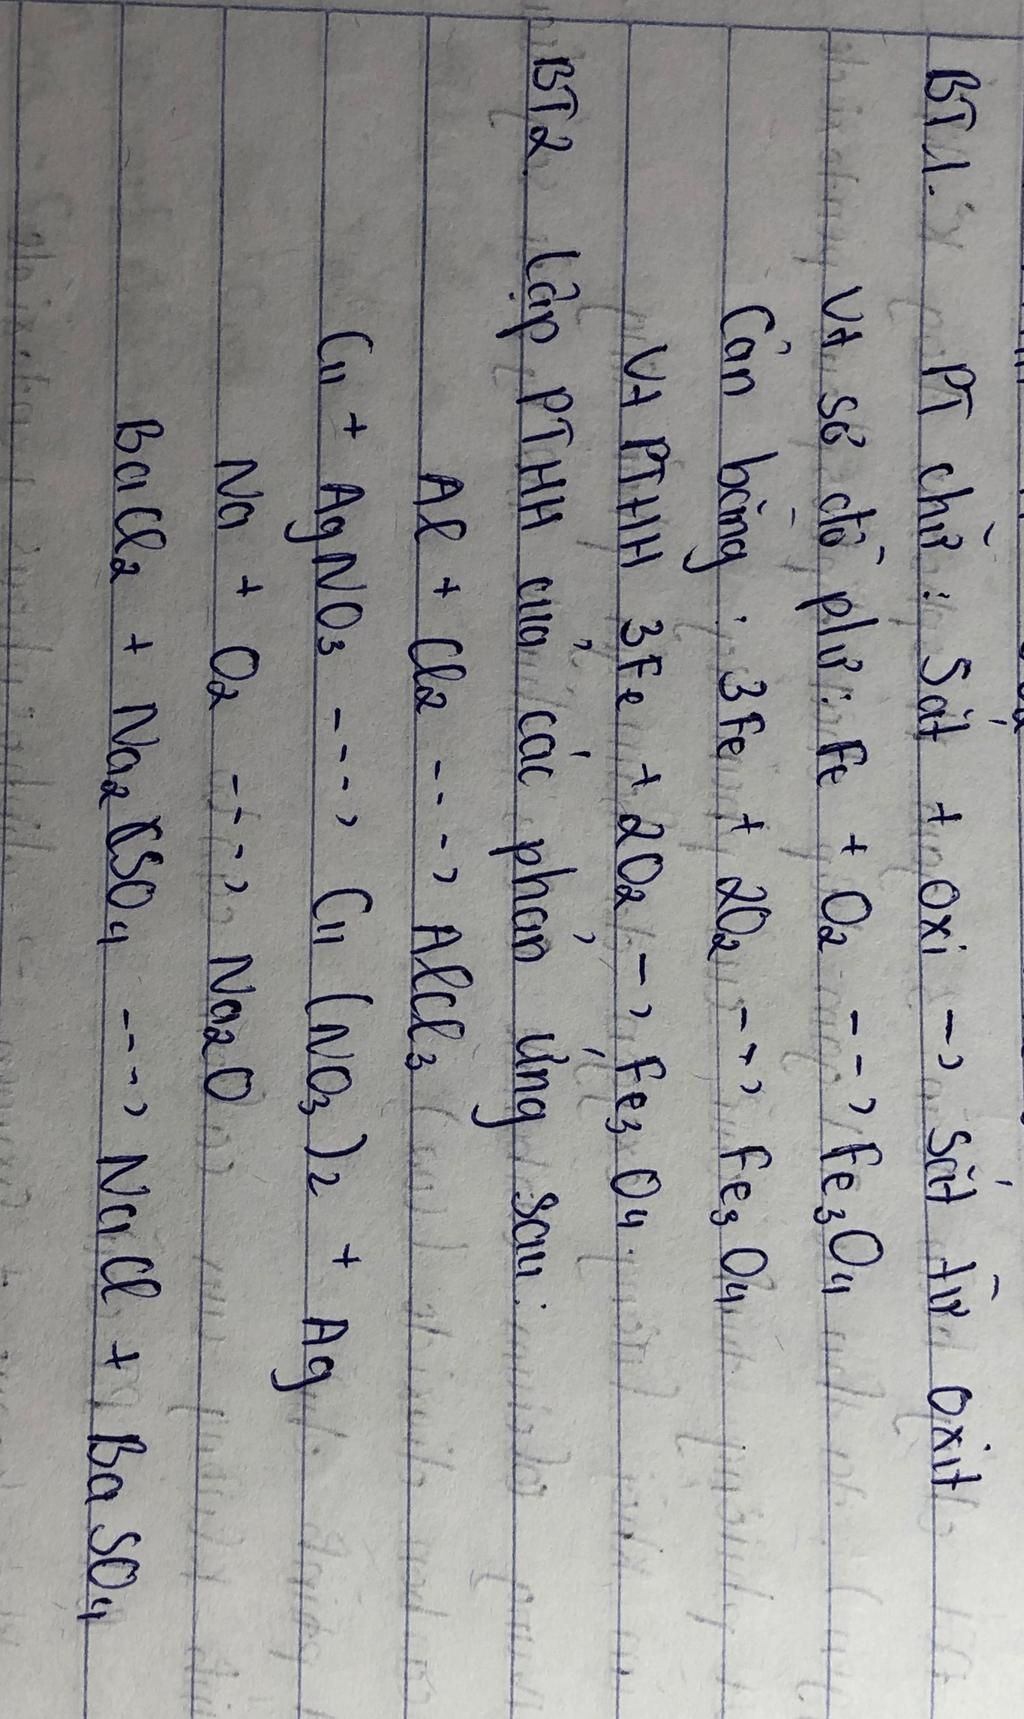 BT1. PT chữ: Sắt + oxi -> Sắt từ oxit
Vt sơ đồ phư: Fe + O2 ---> Fe3O4
Cân bằng: 3Fe + 2O2 --> Fe3O4
Vt PTHH 3Fe + 2O2 -> Fe3O4.
BT2. Lập PTHH của các phản ứng sau:
Al + Cl2 ---> AlCl3
Cu + AgNO3 ---> Cu(NO3)2 + Ag
Na + O2 ---> Na2O
BaCl2 + Na2SO4 ---> NaCl + BaSO4